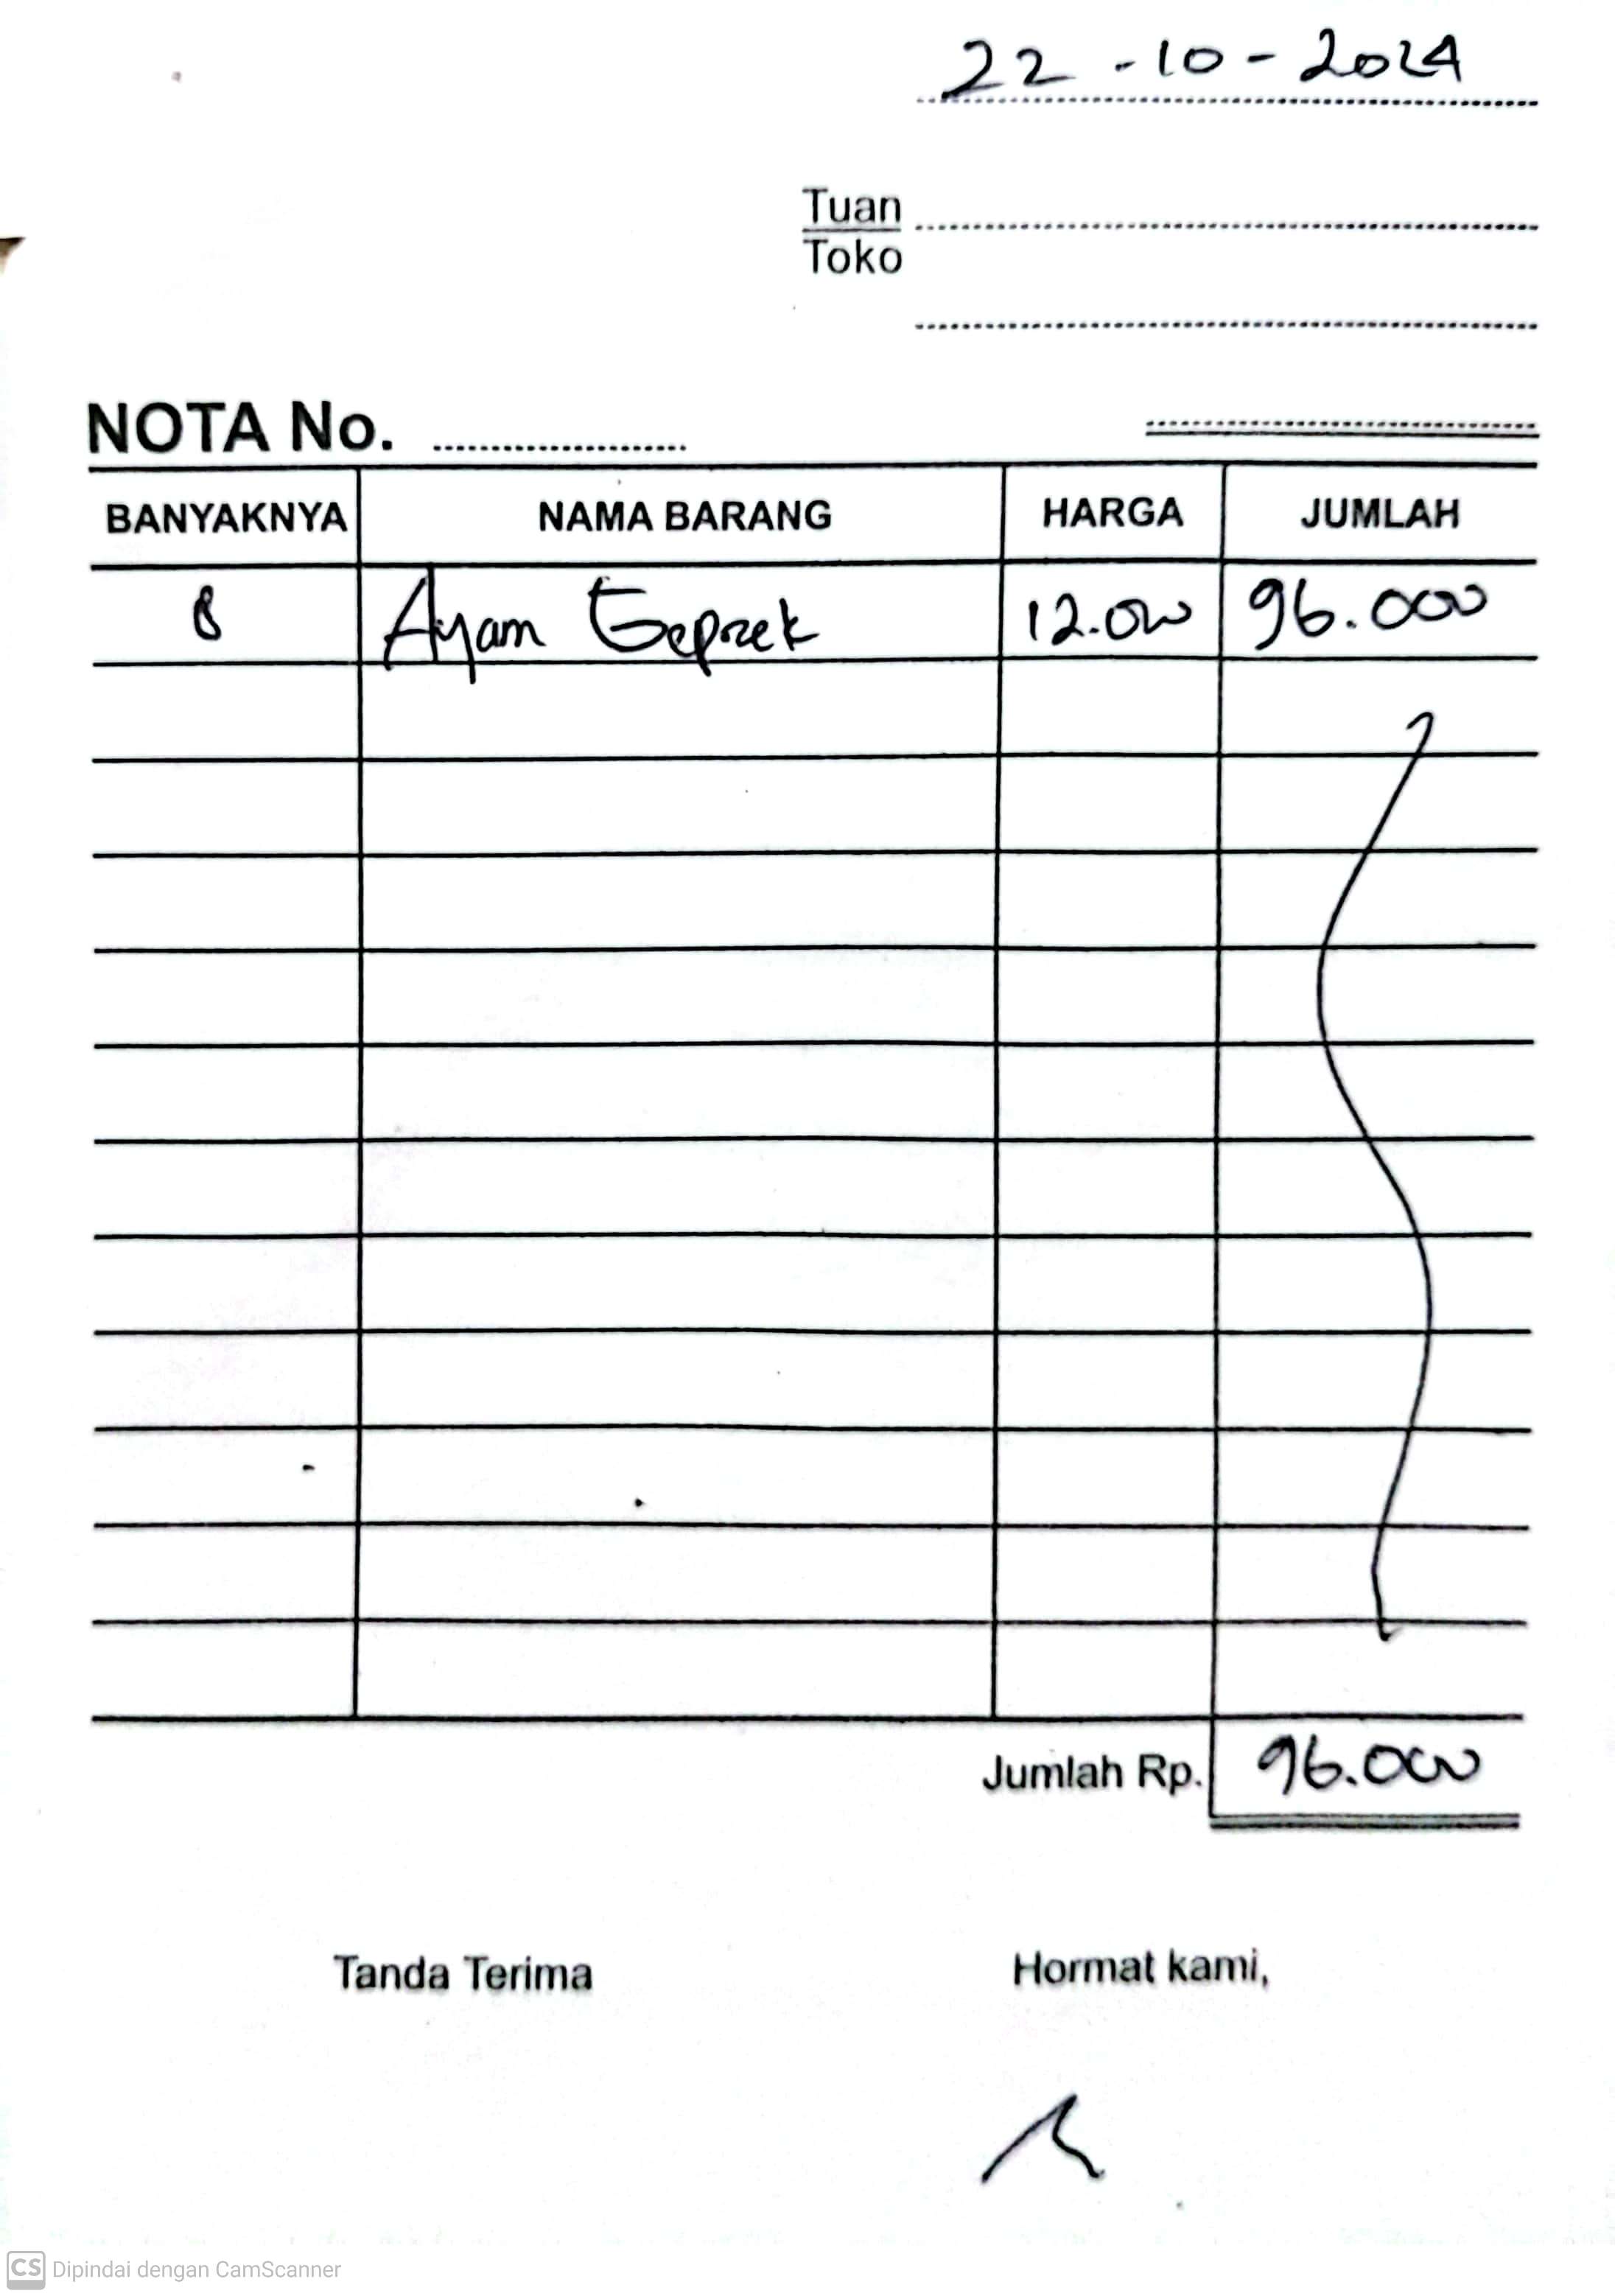 22-10-2024
Tuan
Toko
NOTA No.
BANYAKNYA NAMA BARANG HARGA JUMLAH
8 Ayam Geprek 12.000 96.000
Jumlah Rp. 96.000
Tanda Terima Hormat kami,
CS Dipindai dengan CamScanner